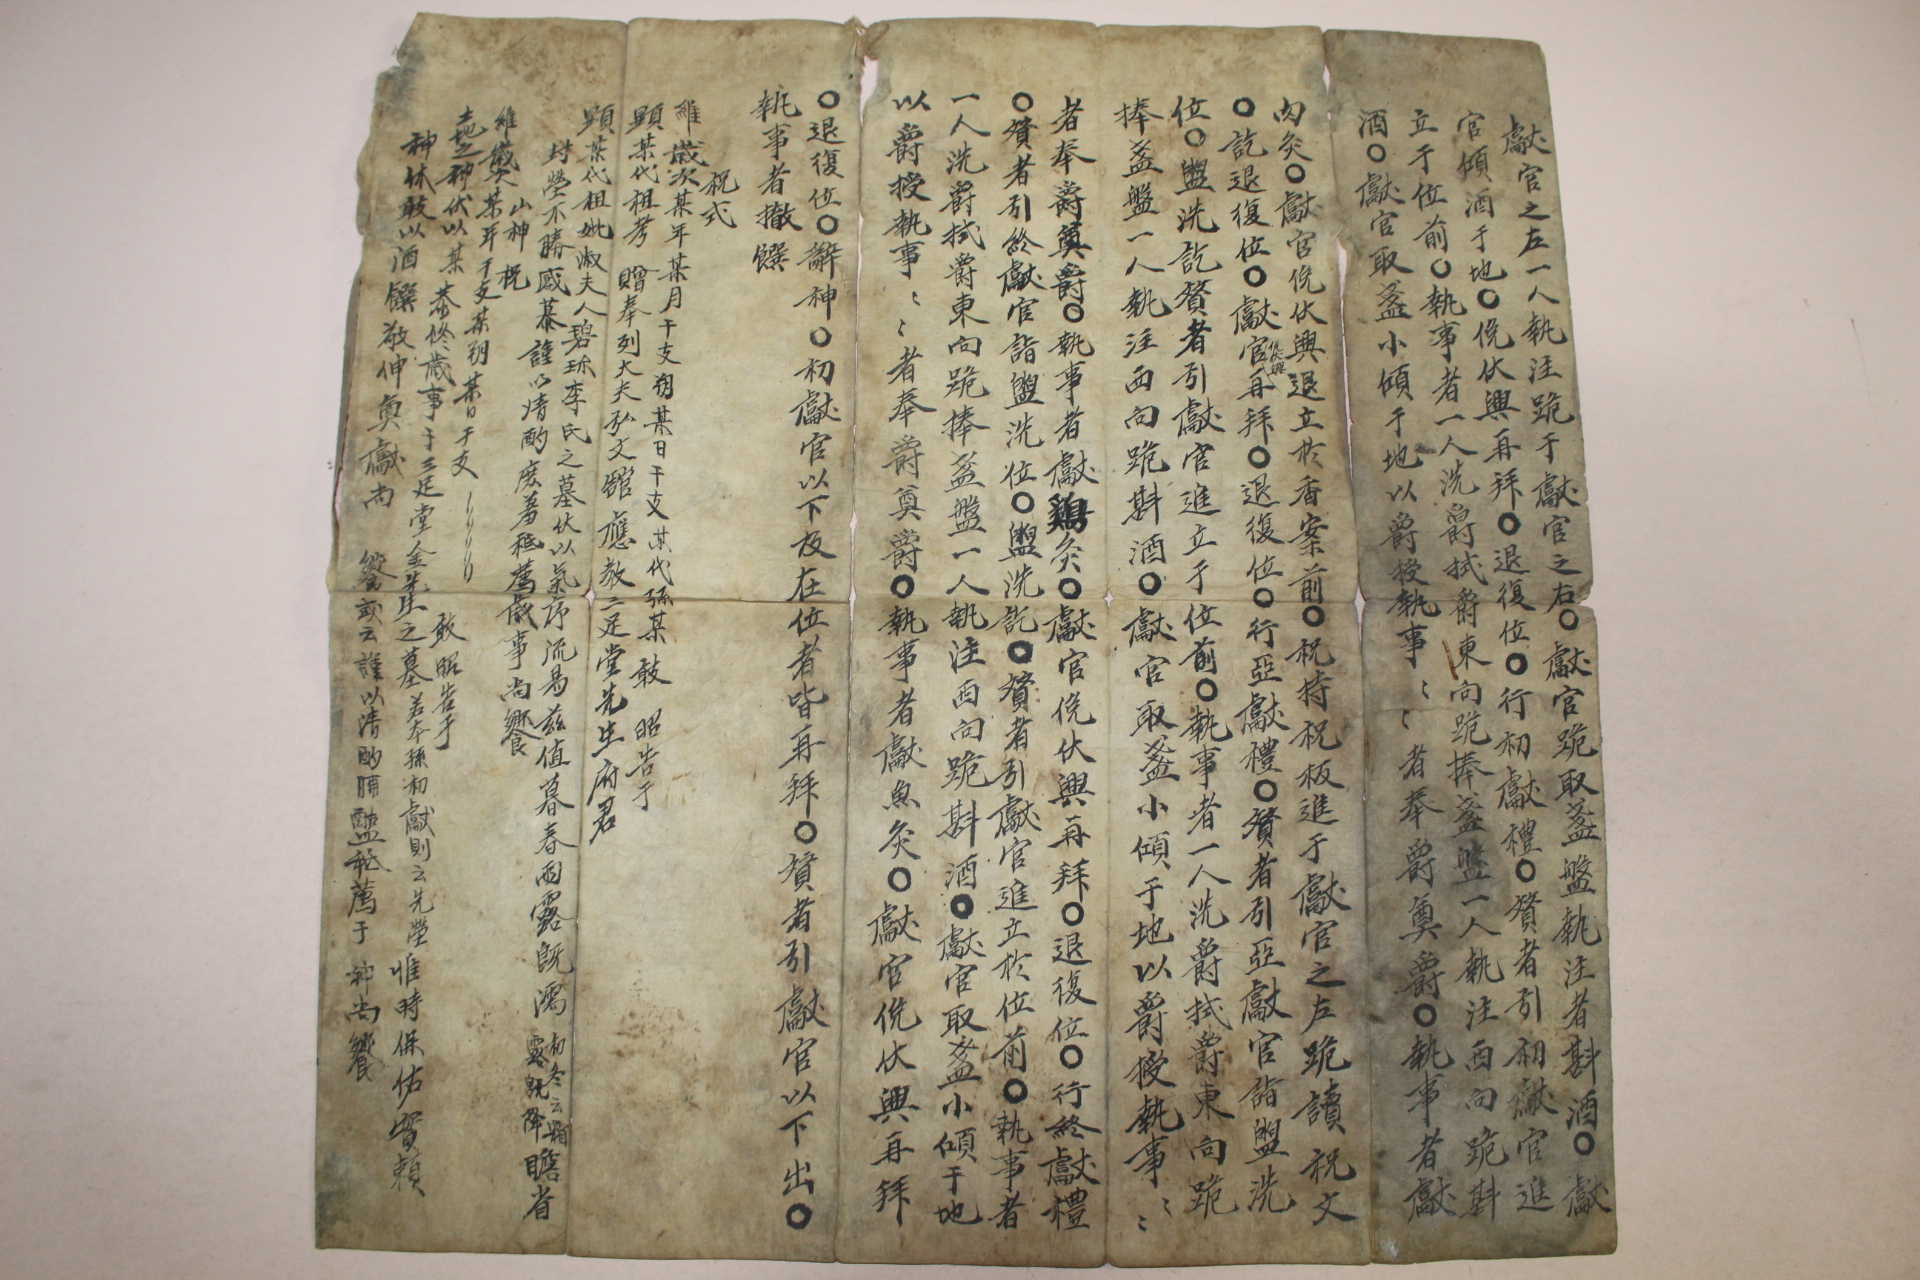 獻官之左一人執注跪于獻官之右○獻官跪取盞盤執注者斟酒○獻
官傾酒于地○俛伏興再拜○退復位○行初獻禮○贊者引初獻官進
立于位前○執事者一人洗爵拭爵東向跪捧盞盤一人執注西向跪斟
酒○獻官取盞小傾于地以爵授執事〻〻者奉爵奠爵○執事者獻
肉灸○獻官俛伏興退立於香案前○祝持祝板進于獻官之左跪讀祝文
○訖退復位○獻官俛伏興再拜○退復位○行亞獻禮○贊者引亞獻官詣盥洗
位○盥洗訖贊者引獻官進立于位前○執事者一人洗爵拭爵東向跪
捧盞盤一人執注西向跪斟酒○獻官取盞小傾于地以爵授執事〻〻
者奉爵奠爵○執事者獻鷄灸○獻官俛伏興再拜○退復位○行終獻禮
○贊者引終獻官詣盥洗位○盥洗訖○贊者引獻官進立於位前○執事者
一人洗爵拭爵東向跪捧盞盤一人執注西向跪斟酒○獻官取盞小傾于地
以爵授執事〻〻者奉爵奠爵○執事者獻魚灸○獻官俛伏興再拜
○退復位○辭神○初獻官以下及在位者皆再拜○贊者引獻官以下出○
執事者撤饌
祝式
維歲次某年某月干支朔某日干支某代孫某敢 昭告于
顯某代祖考 贈奉列大夫弘文館應敎三足堂先生府君
顯某代祖妣淑夫人碧珍李氏之墓伏以氣序流易茲値暮春雨露旣濡 初冬云霜露旣降 瞻省
封塋不勝感慕謹以淸酌庶羞祗薦歲事尙饗
山神祝
維歲次某年干支某朔某日干支 敢昭告于
土地之神伏以某恭修歲事于三足堂金先生之墓若本孫初獻則云先塋 惟時保佑實賴
神休敢以酒饌敬伸奠獻尙 饗或云謹以淸酌脯醢祗薦于 神尙饗